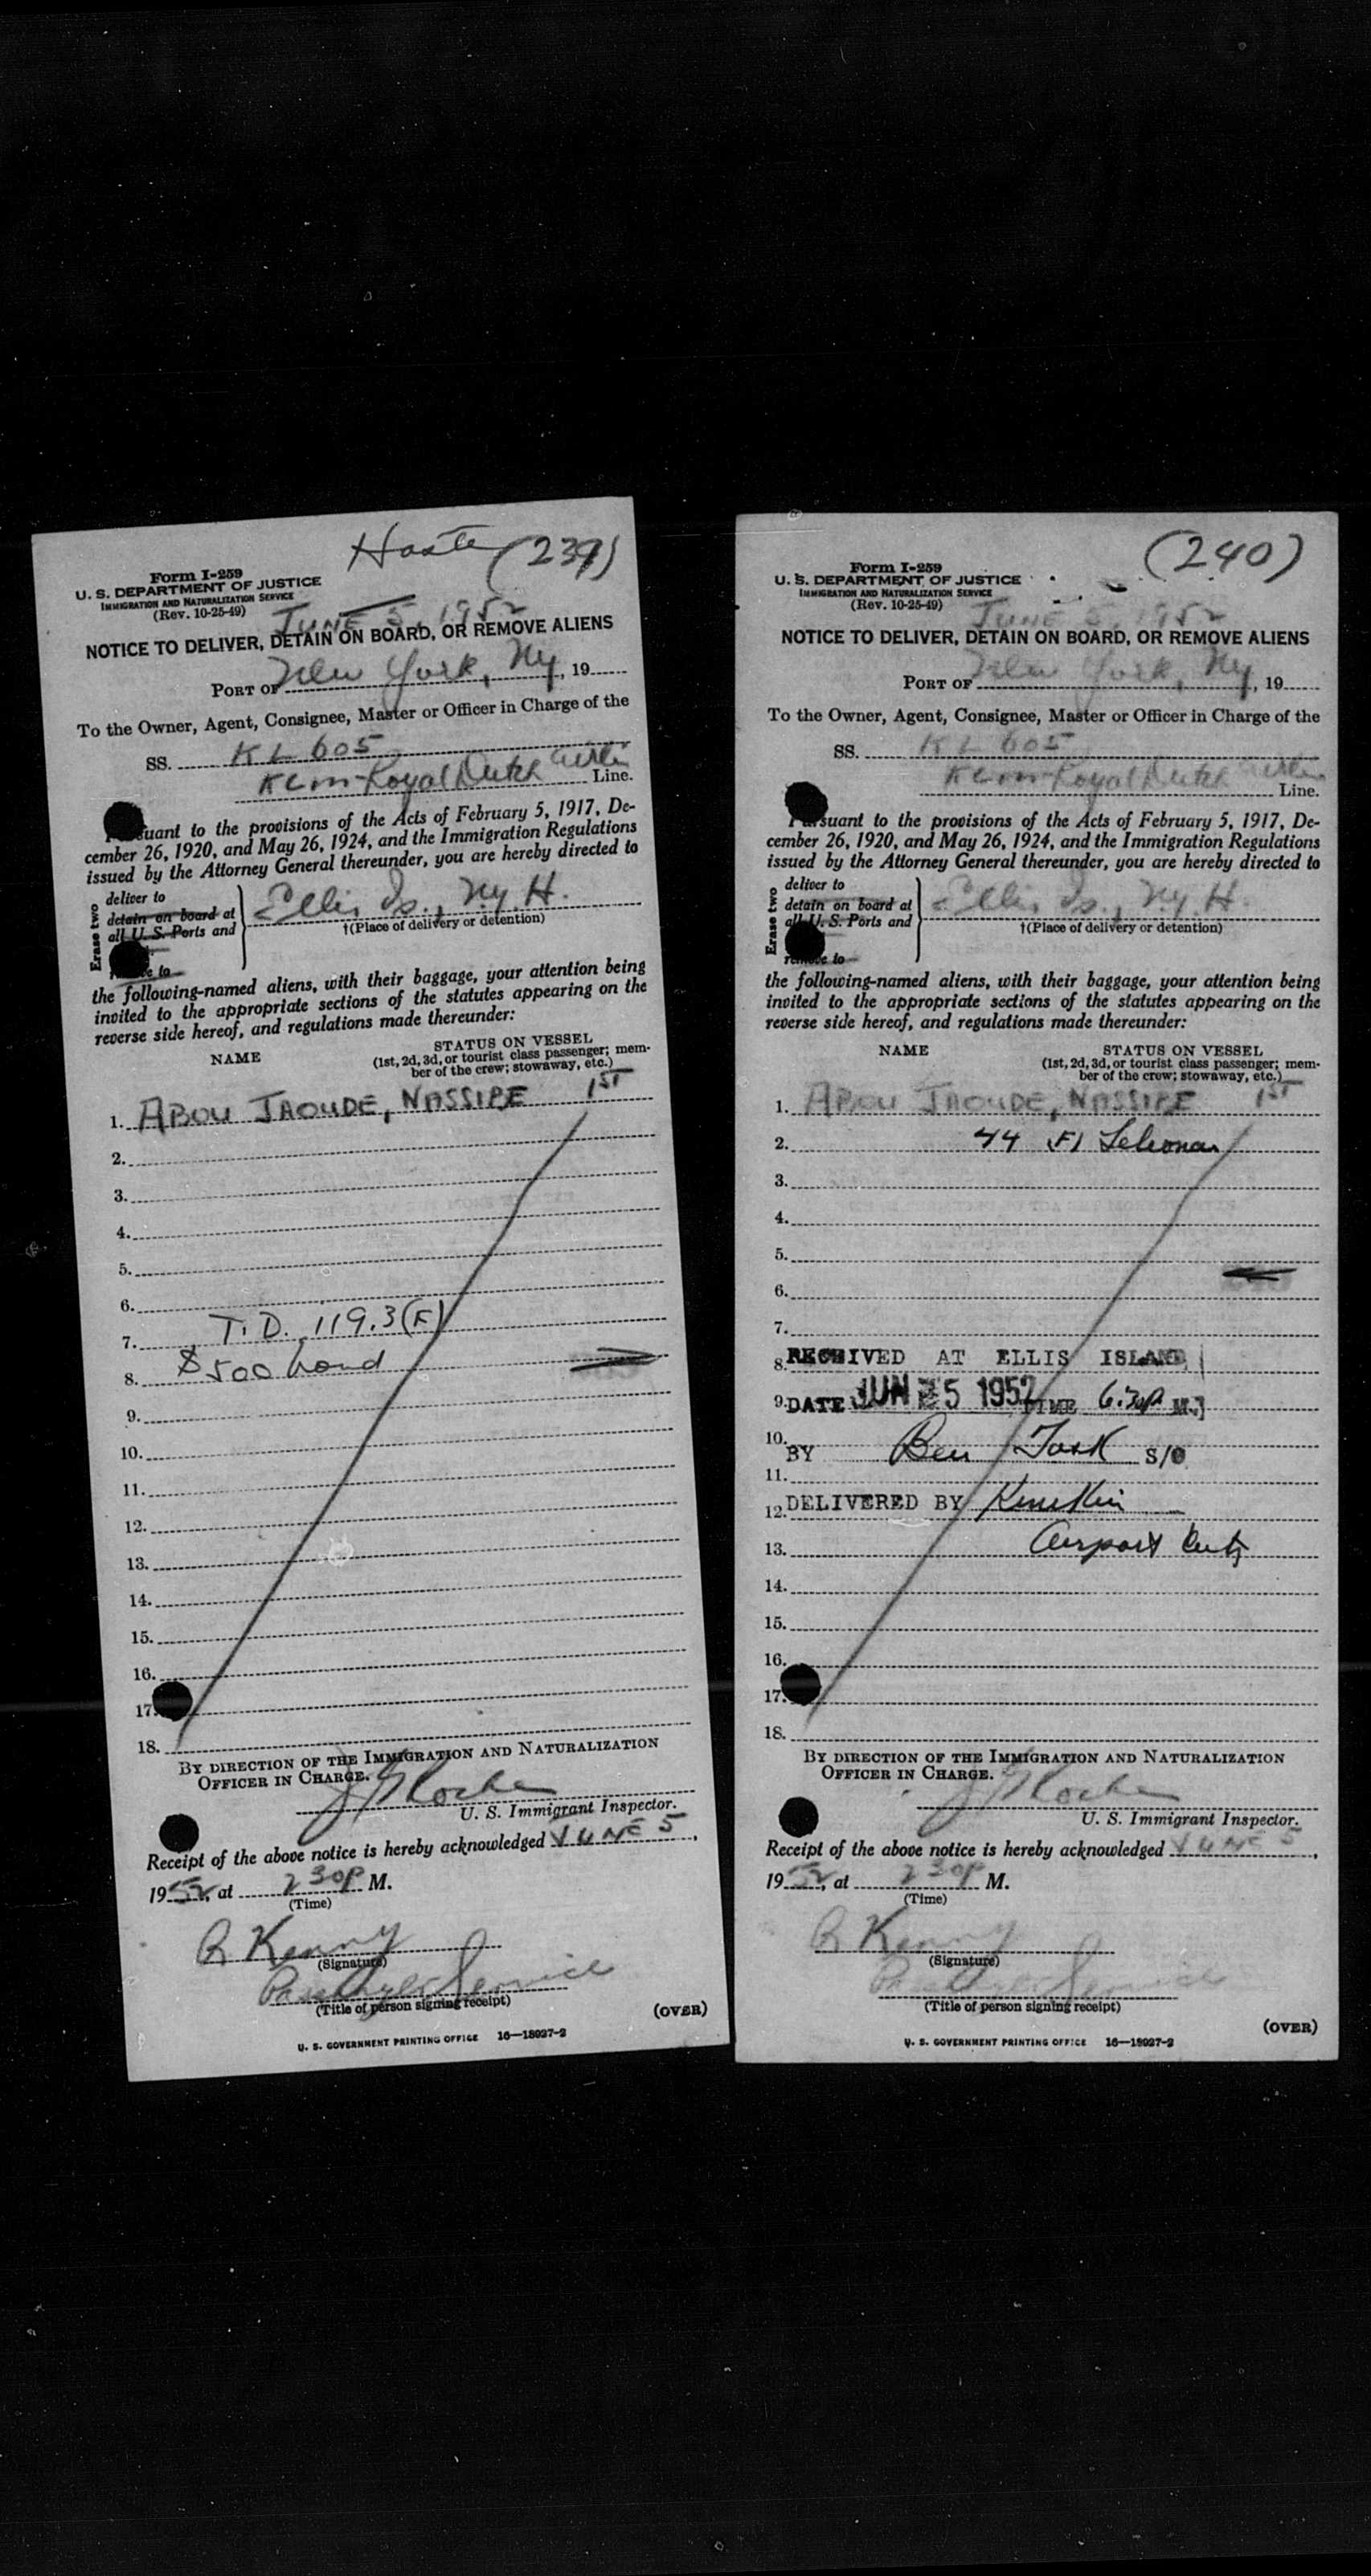 Haste (239)
Form I-259
U. S. DEPARTMENT OF JUSTICE
IMMIGRATION AND NATURALIZATION SERVICE
(Rev. 10-25-49)
JUNE 5, 1952
NOTICE TO DELIVER, DETAIN ON BOARD, OR REMOVE ALIENS
PORT OF New York, Ny, 19
To the Owner, Agent, Consignee, Master or Officer in Charge of the
SS. KL 605
KLM-Royal Dutch Airlin Line.
suant to the provisions of the Acts of February 5, 1917, De-
cember 26, 1920, and May 26, 1924, and the Immigration Regulations
issued by the Attorney General thereunder, you are hereby directed to
Erase two
deliver to
detain on board at
all U. S. Ports and
e to
Ellis Is., Ny. H.
†(Place of delivery or detention)
the following-named aliens, with their baggage, your attention being
invited to the appropriate sections of the statutes appearing on the
reverse side hereof, and regulations made thereunder:
NAME STATUS ON VESSEL
(1st, 2d, 3d, or tourist class passenger; mem-
ber of the crew; stowaway, etc.)
1. ABOU JAOUDE, NASSIPE 1ST
2.
3.
4.
5.
6.
7. T.D. 119.3(F)
8. $500 bond
9.
10.
11.
12.
13.
14.
15.
16.
17.
18.
BY DIRECTION OF THE IMMIGRATION AND NATURALIZATION
OFFICER IN CHARGE.
J Roche
U. S. Immigrant Inspector.
Receipt of the above notice is hereby acknowledged JUNE 5,
1952, at 230P M.
(Time)
R Kenny
(Signature)
Passenger Service
(Title of person signing receipt)
(OVER)
U. S. GOVERNMENT PRINTING OFFICE 16—18027-2
(240)
Form I-259
U. S. DEPARTMENT OF JUSTICE
IMMIGRATION AND NATURALIZATION SERVICE
(Rev. 10-25-49)
JUNE 5, 1952
NOTICE TO DELIVER, DETAIN ON BOARD, OR REMOVE ALIENS
PORT OF New York, Ny, 19
To the Owner, Agent, Consignee, Master or Officer in Charge of the
SS. KL 605
KLM-Royal Dutch Airlin Line.
Pursuant to the provisions of the Acts of February 5, 1917, De-
cember 26, 1920, and May 26, 1924, and the Immigration Regulations
issued by the Attorney General thereunder, you are hereby directed to
Erase two
deliver to
detain on board at
all U. S. Ports and
remove to
Ellis Is., Ny. H.
†(Place of delivery or detention)
the following-named aliens, with their baggage, your attention being
invited to the appropriate sections of the statutes appearing on the
reverse side hereof, and regulations made thereunder:
NAME STATUS ON VESSEL
(1st, 2d, 3d, or tourist class passenger; mem-
ber of the crew; stowaway, etc.)
1. ABOU JAOUDE, NASSIPE 1ST
2. 44 (F)
3.
4.
5.
6.
7.
8. RECEIVED AT ELLIS ISLAND
9. DATE JUN 5 1952 TIME 6:30P M.
10. BY Ben Task S/O
11.
12. DELIVERED BY
13. Airport
14.
15.
16.
17.
18.
BY DIRECTION OF THE IMMIGRATION AND NATURALIZATION
OFFICER IN CHARGE.
J Roche
U. S. Immigrant Inspector.
Receipt of the above notice is hereby acknowledged JUNE 5,
1952, at 230P M.
(Time)
R Kenny
(Signature)
Passenger Service
(Title of person signing receipt)
(OVER)
U. S. GOVERNMENT PRINTING OFFICE 16—18027-2